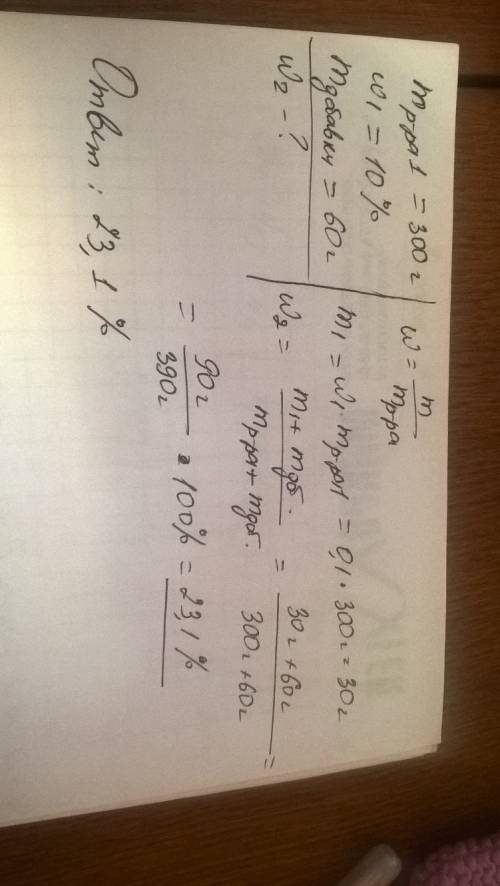 mр-ра1 = 300г
w1 = 10%
mдобавки = 60г
w2 - ?
w = m / mр-ра
m1 = w1 · mр-ра1 = 0,1 · 300г = 30г
w2 = (m1 + mдоб.) / (mр-ра1 + mдоб.) = (30г + 60г) / (300г + 60г) =
= 90г / 390г · 100% = 23,1%
Ответ: 23,1%